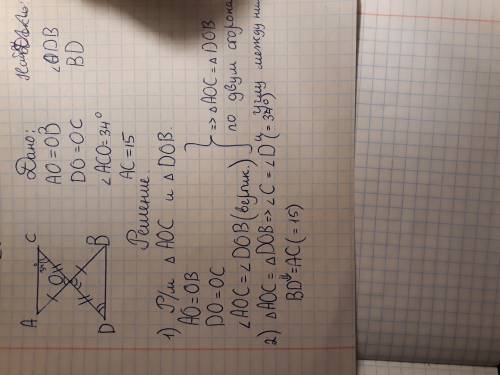 A C
O
D B
34°
Дано:
AO=OB
DO=OC
∠ACO=34°
AC=15
Найти:
∠ODB
BD
Решение
1) Р/м △AOC и △DOB.
AO=OB
DO=OC
∠AOC=∠DOB (вертик.)
} => △AOC=△DOB
по двум сторонам
и углу между ними
2) △AOC=△DOB => ∠C=∠D (=34°)
BD=AC (=15)